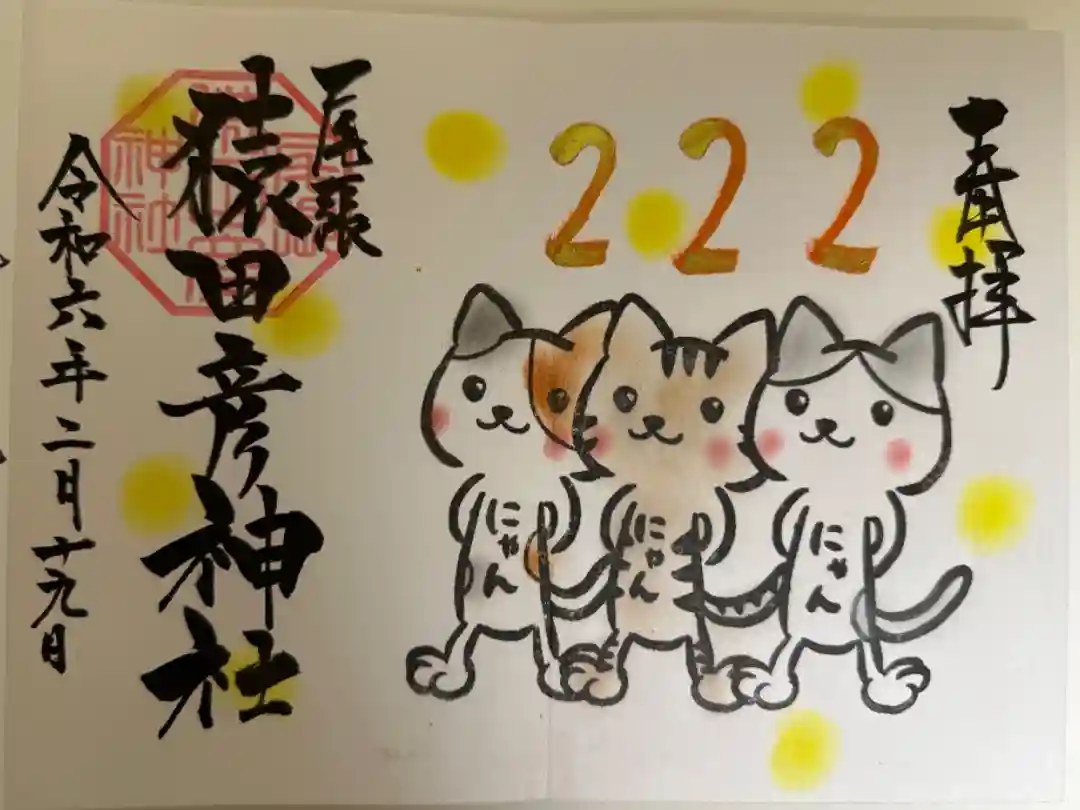 奉拝
222
にゃん
にゃん
にゃん
尾張
猿田彦神社
令和六年二月十九日